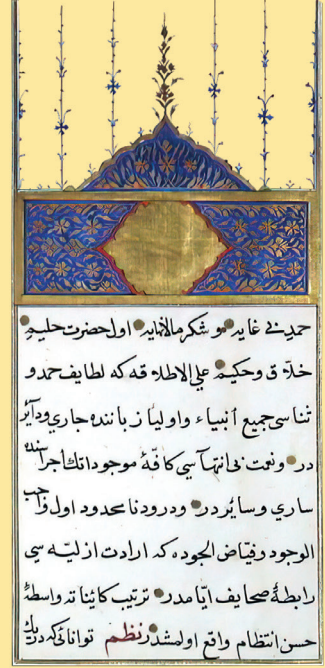 حمد بی غایه و شکر مالانهایه اول حضرت حلیم
خلاق و حکیم علی الاطلاقه که لطایف حمد و
ثناسی جمیع أنبیاء و اولیا زباننده جاری و دائر
در و نعت بی انتهاسی کافهٔ موجوداتك أجزاسنده
ساری و سایُر در و درود نامحدود اول واجب
الوجود و فیاض الجوده که ارادت ازلیه سی
رابطهٔ صحایف ایامدر ترتیب کایناته واسطهٔ
حسن انتظام واقع اولمشدر نظم توانائی که دریك